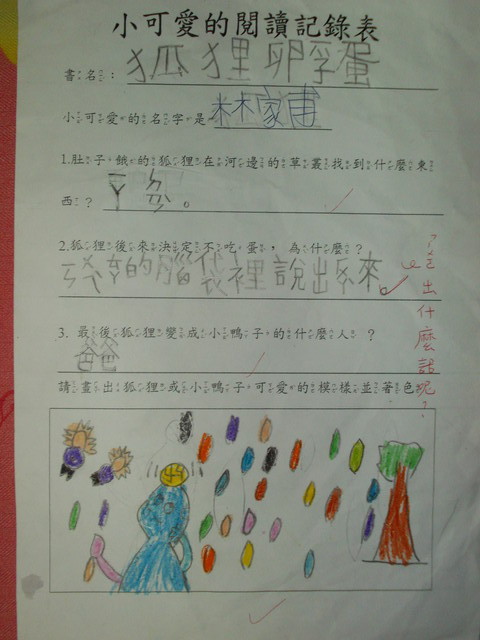 小可愛的閱讀記錄表
書名：狐狸卵孵蛋
小可愛的名字是林家
1.肚子餓的狐狸在河邊的草叢找到什麼東
西？
2.狐狸後來決定不吃蛋，為什麼？
的腦袋裡說出來
說出什麼話呢？
3. 最後狐狸變成小鴨子的什麼人？
爸爸
請畫出狐狸或小鴨子可愛的模樣並著色